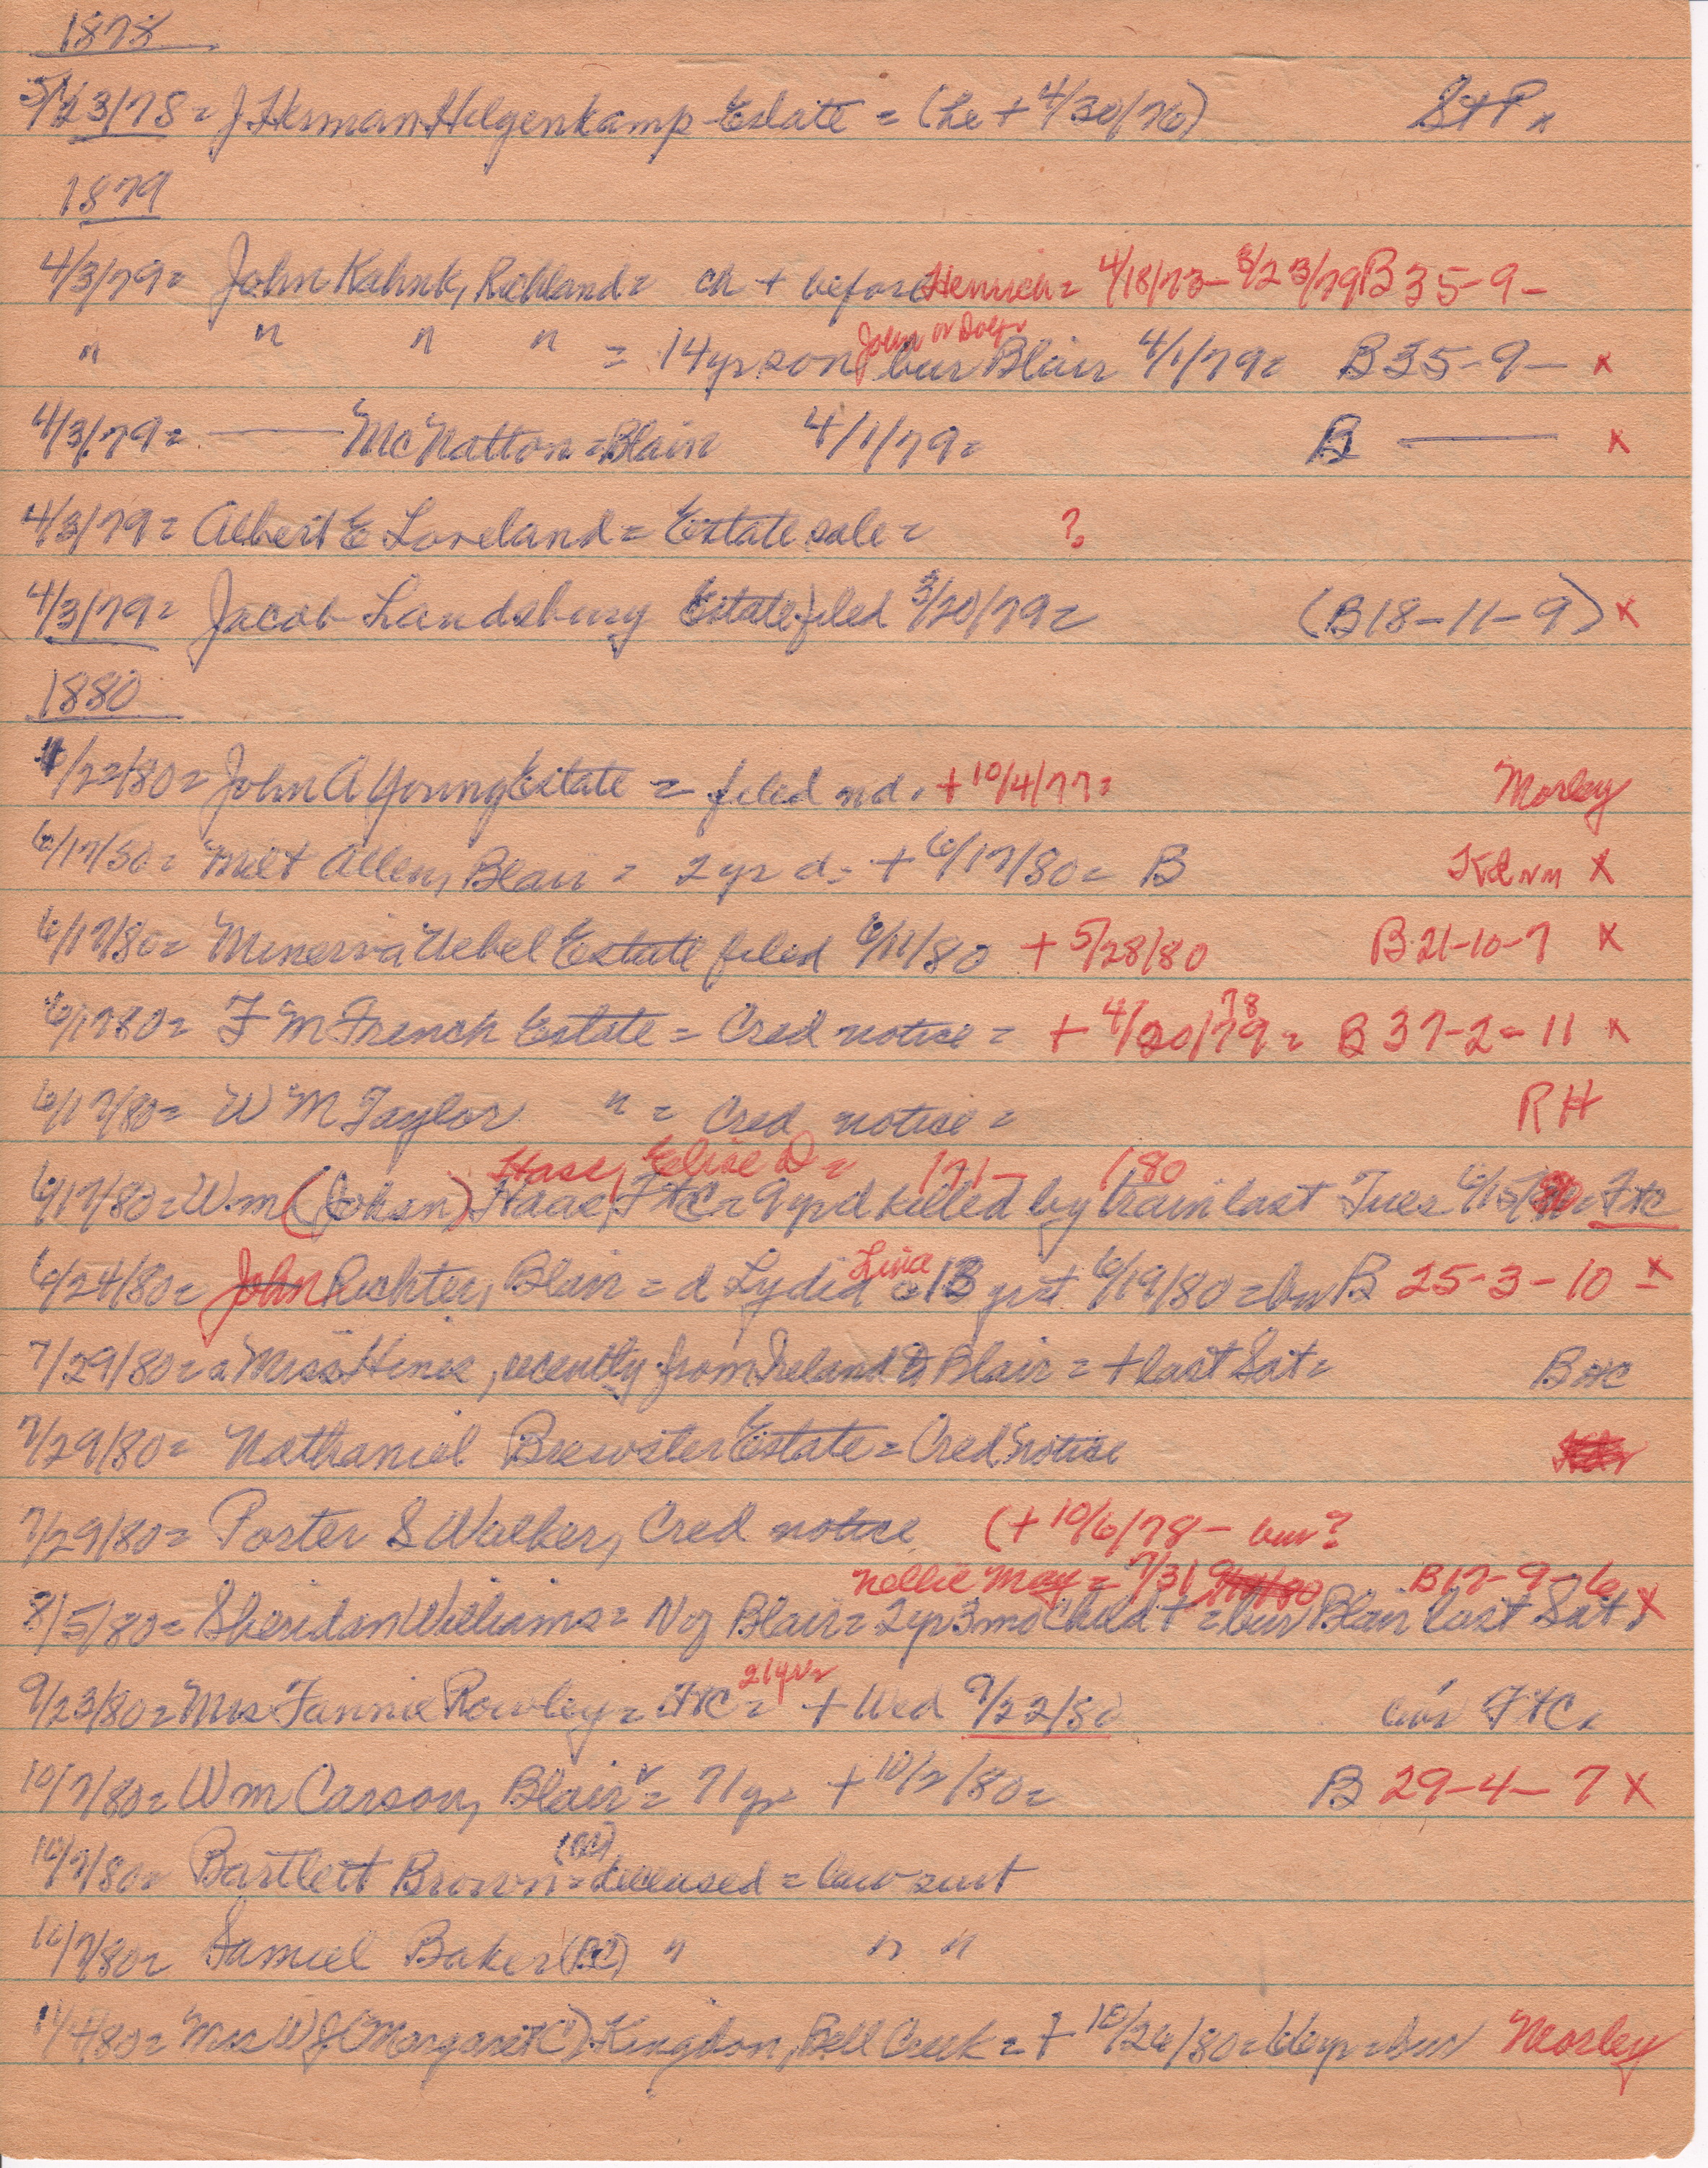 1878
5/23/78= J Herman Hilgenkamp Estate = (he + 4/30/76) St P x
1879
4/3/79= John Kahnk, Richland= ch + before Henrich= 4/18/73- 3/23/79 B 35-9-
" " " " = 14yr son John or Dolf bur Blair 4/1/79= B 35-9- x
4/3/79= —— McNatton=Blair 4/1/79= B —— x
4/3/79= Albert E Loveland= Estate sale= ?
4/3/79= Jacob Landsburg Estate filed 3/20/79= (B18-11-9) x
1880
/22/80= John A Young Estate = filed nd. + 10/4/77= Morley
6/17/80= Milt Allen, Blair = 2 yr d= + 6/17/80= B x
6/17/80= Minerva Uebel Estate filed 6/11/80 + 5/28/80 B 21-10-7 x
6/17/80= F M French Estate = Cred notice = + 4/20/79= 78 B 37-2-11 x
6/17/80= W M Taylor " = Cred notice = RH
Hase, Elise D= 171- 180
6/17/80= Wm (Johan) Haas, FtC= 9yr d killed by train last Tues 6/15/80= FtC
6/24/80= John Richter, Blair = d Lydia Lina 13 yr + 6/19/80 =bur B 25-3-10 x
7/29/80= a Miss Hines, recently from Ireland to Blair = + last Sat= B
7/29/80= Nathaniel Brewster Estate = Cred notice
7/29/80= Porter S Walker, Cred notice (+ 10/6/78- bur?
Nellie May = 7/31 B17-9-6
8/5/80= Sheridan Williams= N of Blair= 2yr 3mo child + =bur Blair last Sat x
9/23/80= Mrs Fannie Rowley= FtC= 21yr= + Wed 9/22/80 FtC
10/7/80= Wm Carson, Blair = 71yr + 10/2/80= B 29-4-7 x
10/7/80= Bartlett Brown (BC) =deceased = law suit
10/7/80= Samuel Baker (BC) " " "
11/4/80= Mrs W J (Margaret C) Kingdon, Bell Creek = + 10/26/80= 66yr =bur Morley